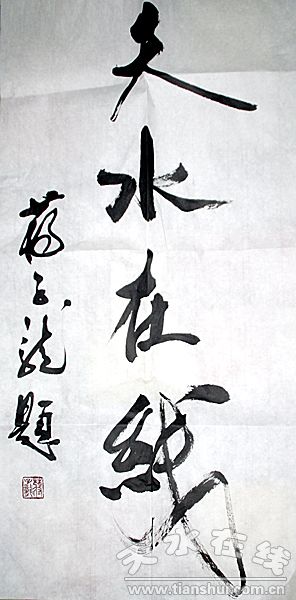 天水在线
蒋子龙题
天水在线
www.tianshui.com.cn